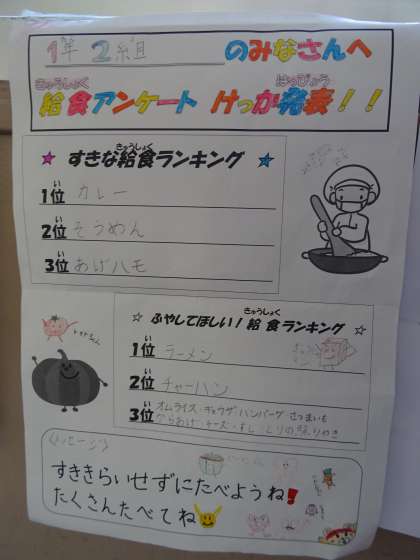 1年 2組 のみなさんへ
きゅうしょく はっぴょう
給食アンケート けっか発表!!
きゅうしょく
☆ すきな給食ランキング ☆
1位 カレー
2位 そうめん
3位 あげハモ
きゅうしょく
☆ ふやしてほしい!給食ランキング ☆
1位 ラーメン
2位 チャーハン
3位 オムライス・ギョウザ・ハンバーグ さつまいも
からあげ・チーズ・すし・とりの照りやき
トマトちゃん
(メッセージ)
すききらいせずにたべようね!
たくさんたべてね